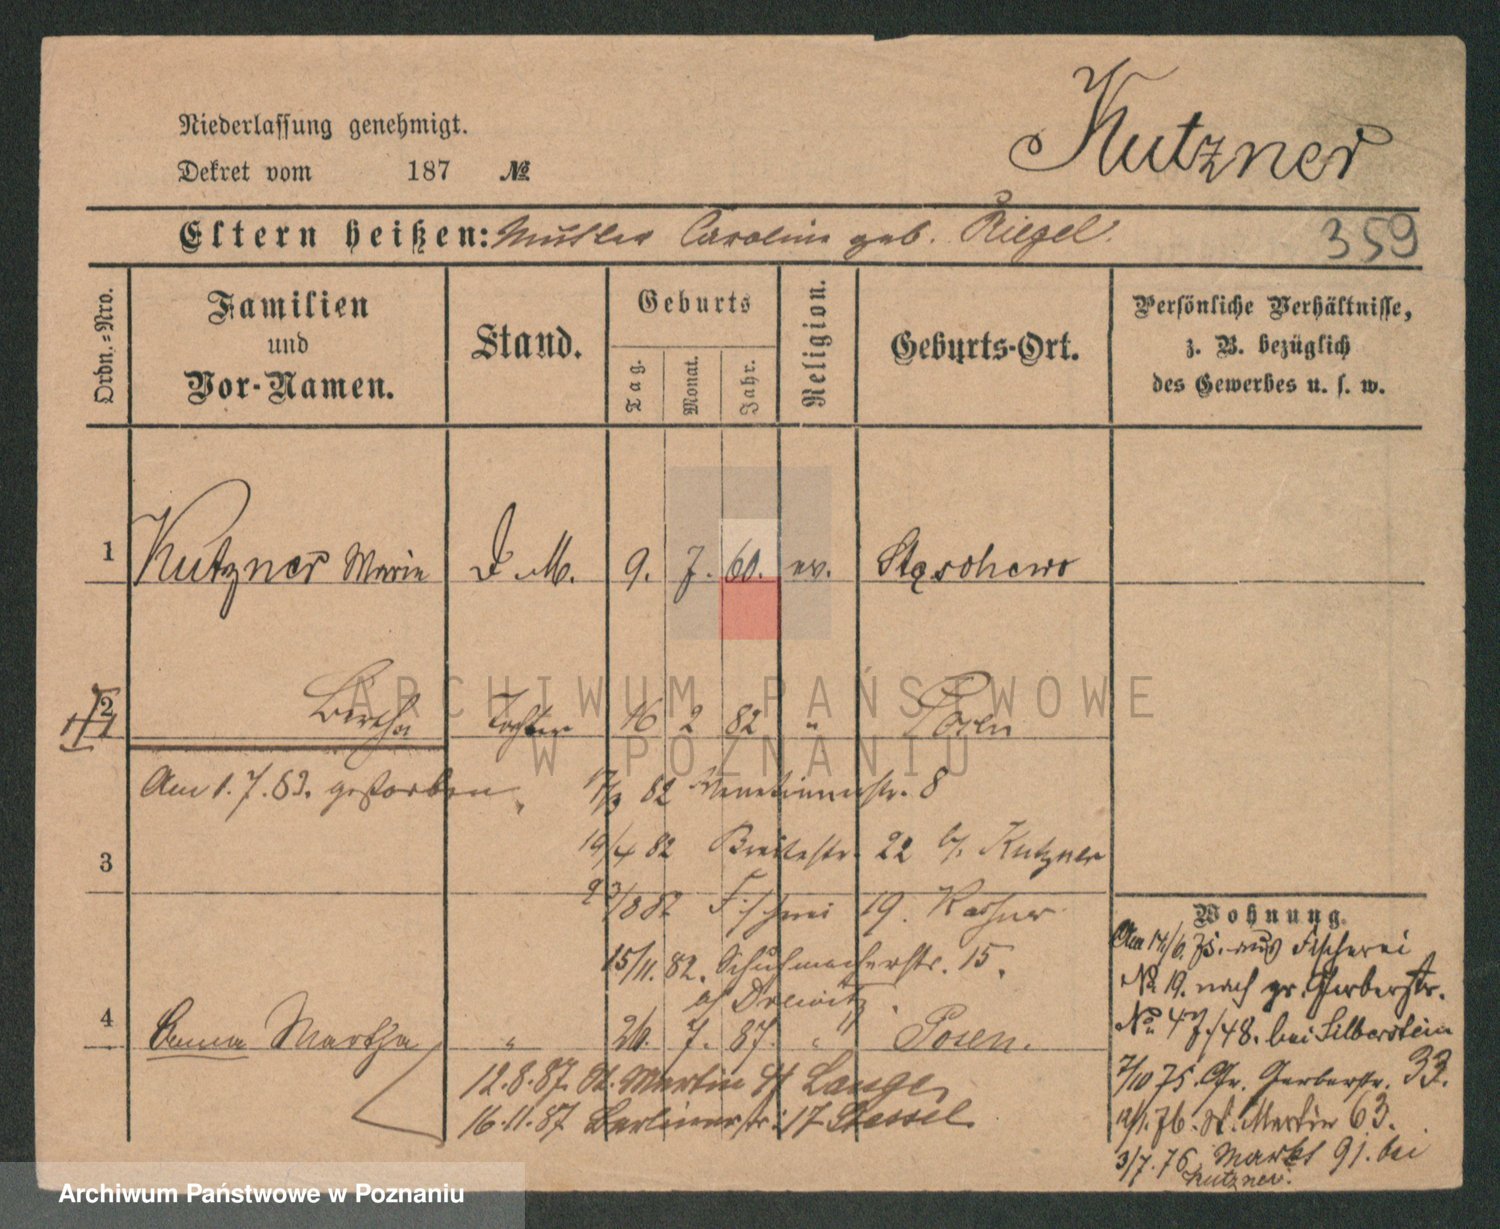 Niederlassung genehmigt.
Dekret vom 187 №
Kutzner
Eltern heißen: Mutter Caroline geb. Riegel.
359
Ordn.-Nro.
Familien
und
Vor-Namen.
Stand.
Geburts
Tag.
Monat.
Jahr.
Religion.
Geburts-Ort.
Persönliche Verhältnisse,
z. B. bezüglich
des Gewerbes u. s. w.
1 Kutzner Marie D. M. 9. 7. 60. ev. Stęschewo
2 Bertha Tochter 16 2 82 " Posen
Am 1.7.83. gestorben
17/3 82 Venetianerstr. 8
3
19/4 82 Breitestr. 22 b/. Kutzner
23/8 82 Fischerei 19.
15/11. 82. Schuhmacherstr. 15.
Drewitz
4 Anna Martha " 26. 7. 87. " Posen.
12.8.87. St. Martin Lange
16.11.87 Berlinerstr. 17 Stessel
Wohnung.
Am 14/6. 75. aus Fischerei
No 19. nach gr. Gerberstr.
No 47/48. bei Silberstein
7/10 75. Gr. Gerberstr. 33.
19/1. 76. St. Martin 63.
3/7. 76 Markt 91. bei
Kutzner.
ARCHIWUM PAŃSTWOWE
W POZNANIU
Archiwum Państwowe w Poznaniu